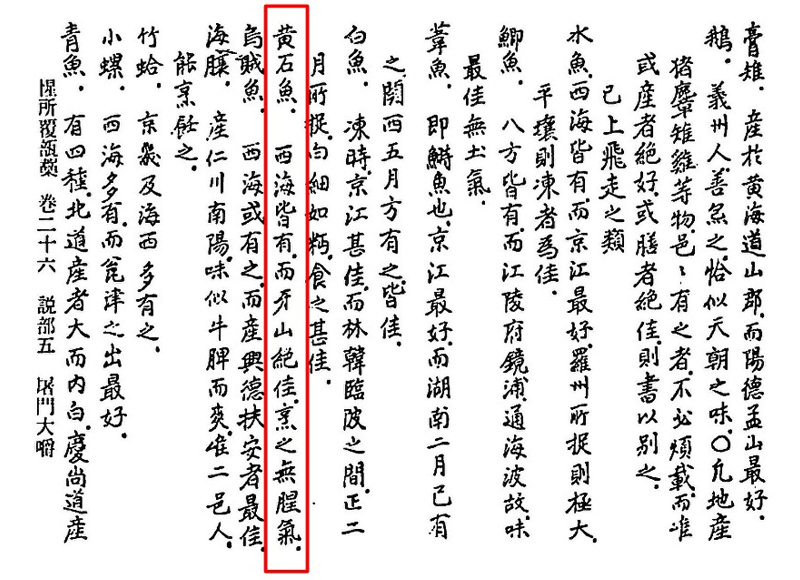 膏雉。產於黃海道山郡。而陽德孟山最好。
鵝。義州人善烹之。恰似天朝之味。〇凡地產
猪麞雉雞等物。邑〻有之者。不必煩載。而唯
或產者絶好。或膳者絶佳。則書以別之。
已上飛走之類
水魚。西海皆有。而京江最好。羅州所捉則極大。
平壤則凍者爲佳。
鯽魚。八方皆有。而江陵府鏡浦通海波。故味
最佳無土氣。
葦魚。即魚也。京江最好。而湖南二月已有
之。関西五月方有之。皆佳。
白魚。凍時。京江甚佳。而林韓臨陂之間。正二
月所捉。白細如麪。食之甚佳。
黃石魚。西海皆有。而牙山絶佳。烹之無腥氣。
烏賊魚。西海或有之。而產興德扶安者最佳。
海。產仁川南陽。味似牛脾而爽。唯二邑人。
能烹飪之。
竹蛤。京畿及海西多有之。
小螺。西海多有。而瓮津之出最好。
青魚。有四種。北道產者大而內白。慶尚道產
惺所覆瓿藁 卷二十六 説部五 屠門大嚼